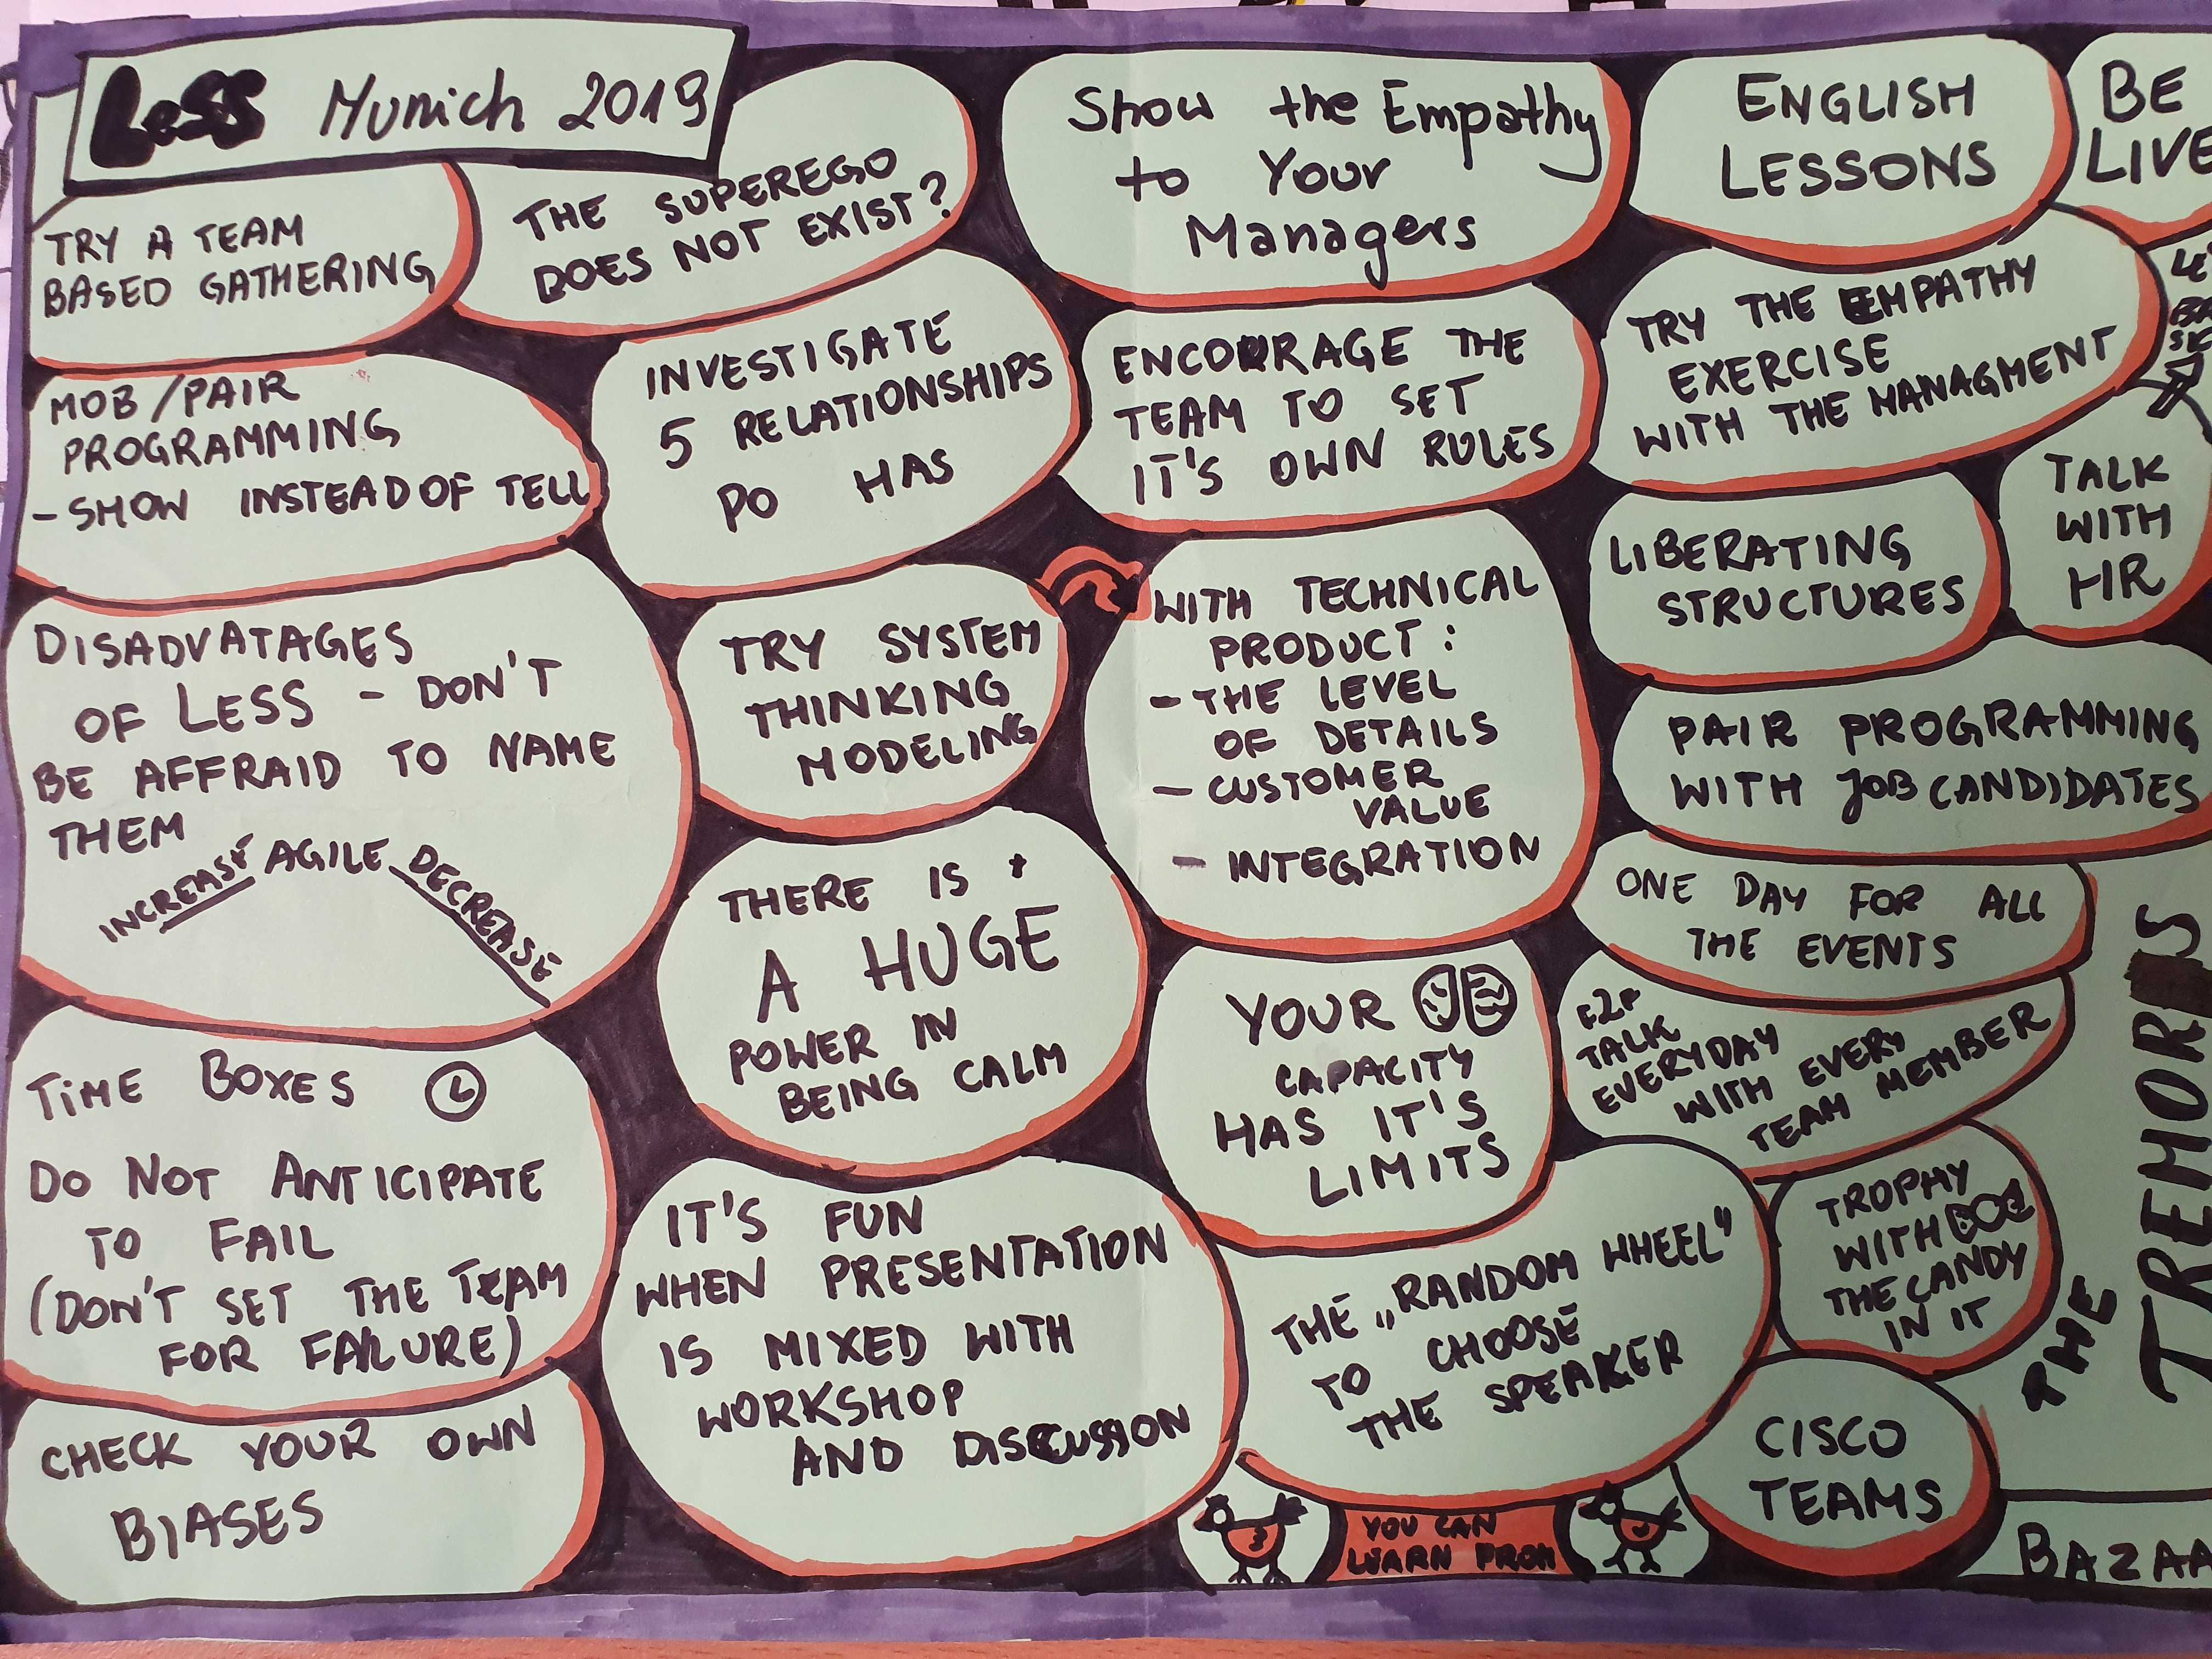 LeSS Munich 2019
TRY A TEAM
BASED GATHERING
THE SUPEREGO
DOES NOT EXIST?
Show the Empathy
to Your
Managers
ENGLISH
LESSONS
BE
LIVE
MOB/PAIR
PROGRAMMING
- SHOW INSTEAD OF TELL
INVESTIGATE
5 RELATIONSHIPS
PO HAS
ENCOURAGE THE
TEAM TO SET
IT'S OWN RULES
TRY THE EMPATHY
EXERCISE
WITH THE MANAGMENT
LIBERATING
STRUCTURES
TALK
WITH
HR
DISADVATAGES
OF LESS - DON'T
BE AFFRAID TO NAME
THEM
INCREASE AGILE DECREASE
TRY SYSTEM
THINKING
MODELING
WITH TECHNICAL
PRODUCT:
- THE LEVEL
OF DETAILS
- CUSTOMER
VALUE
- INTEGRATION
PAIR PROGRAMMING
WITH JOB CANDIDATES
ONE DAY FOR ALL
THE EVENTS
THERE IS
A HUGE
POWER IN
BEING CALM
YOUR
CAPACITY
HAS IT'S
LIMITS
F2F
TALK
EVERYDAY
WITH EVERY
TEAM MEMBER
TIME BOXES
DO NOT ANTICIPATE
TO FAIL
(DON'T SET THE TEAM
FOR FAILURE)
IT'S FUN
WHEN PRESENTATION
IS MIXED WITH
WORKSHOP
AND DISCUSSION
THE „RANDOM WHEEL"
TO CHOOSE
THE SPEAKER
TROPHY
WITH
THE CANDY
IN IT
THE
CHECK YOUR OWN
BIASES
YOU CAN
LEARN FROM
CISCO
TEAMS
BAZAA